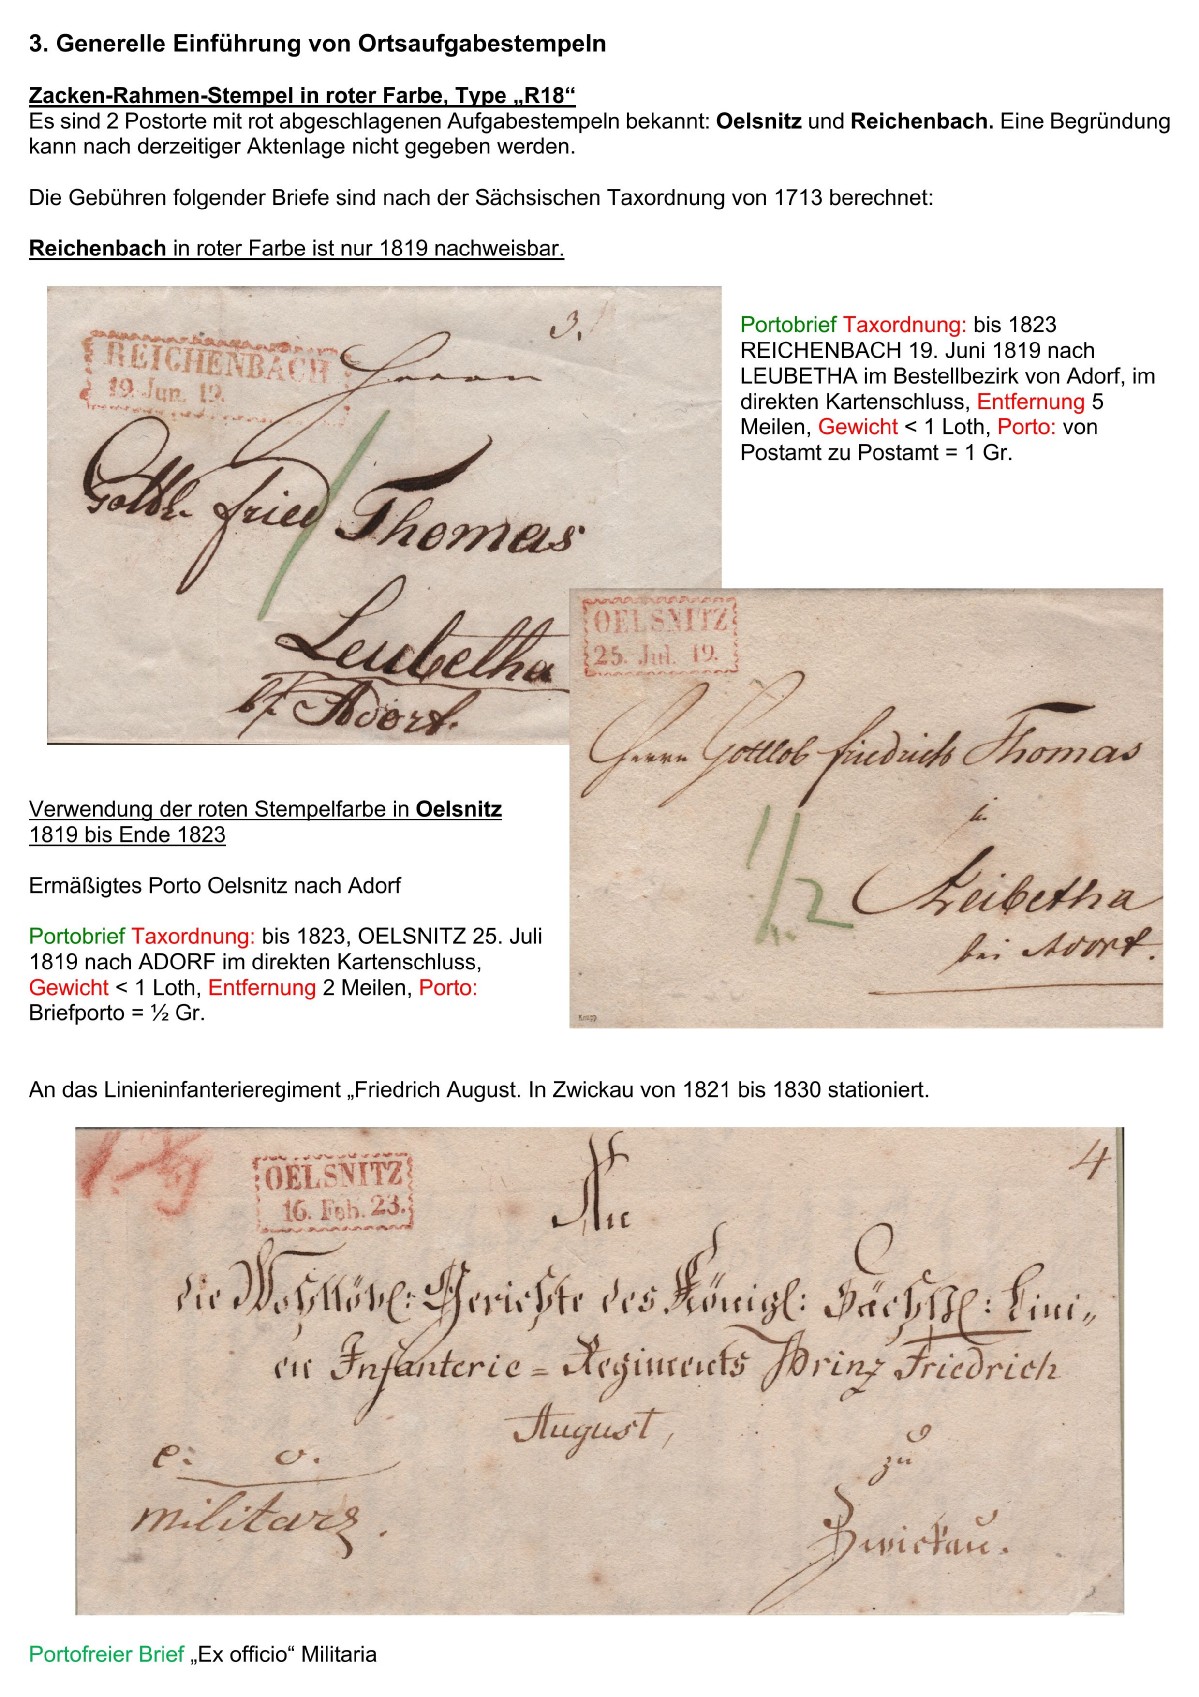 3. Generelle Einführung von Ortsaufgabestempeln
Zacken-Rahmen-Stempel in roter Farbe, Type „R18“
Es sind 2 Postorte mit rot abgeschlagenen Aufgabestempeln bekannt: Oelsnitz und Reichenbach. Eine Begründung
kann nach derzeitiger Aktenlage nicht gegeben werden.
Die Gebühren folgender Briefe sind nach der Sächsischen Taxordnung von 1713 berechnet:
Reichenbach in roter Farbe ist nur 1819 nachweisbar.
3.
REICHENBACH
19. Jun. 19.
Herrn
Gottl. Fried Thomas
Leubetha
bf. Adorf.
Portobrief Taxordnung: bis 1823
REICHENBACH 19. Juni 1819 nach
LEUBETHA im Bestellbezirk von Adorf, im
direkten Kartenschluss, Entfernung 5
Meilen, Gewicht < 1 Loth, Porto: von
Postamt zu Postamt = 1 Gr.
OELSNITZ
25. Jul. 19.
Herrn Gottlob friedrich Thomas
in
Leibetha
bei Adorf.
1/2
Verwendung der roten Stempelfarbe in Oelsnitz
1819 bis Ende 1823
Ermäßigtes Porto Oelsnitz nach Adorf
Portobrief Taxordnung: bis 1823, OELSNITZ 25. Juli
1819 nach ADORF im direkten Kartenschluss,
Gewicht < 1 Loth, Entfernung 2 Meilen, Porto:
Briefporto = ½ Gr.
An das Linieninfanterieregiment „Friedrich August. In Zwickau von 1821 bis 1830 stationiert.
OELSNITZ
16. Feb. 23.
4
An
die Wohllöbl: Gerichte des Königl: Sächßl: Lini-
en Infanterie = Regiments Prinz Friedrich
August,
e: o.
militaria.
zu
Zwickau.
Portofreier Brief „Ex officio“ Militaria